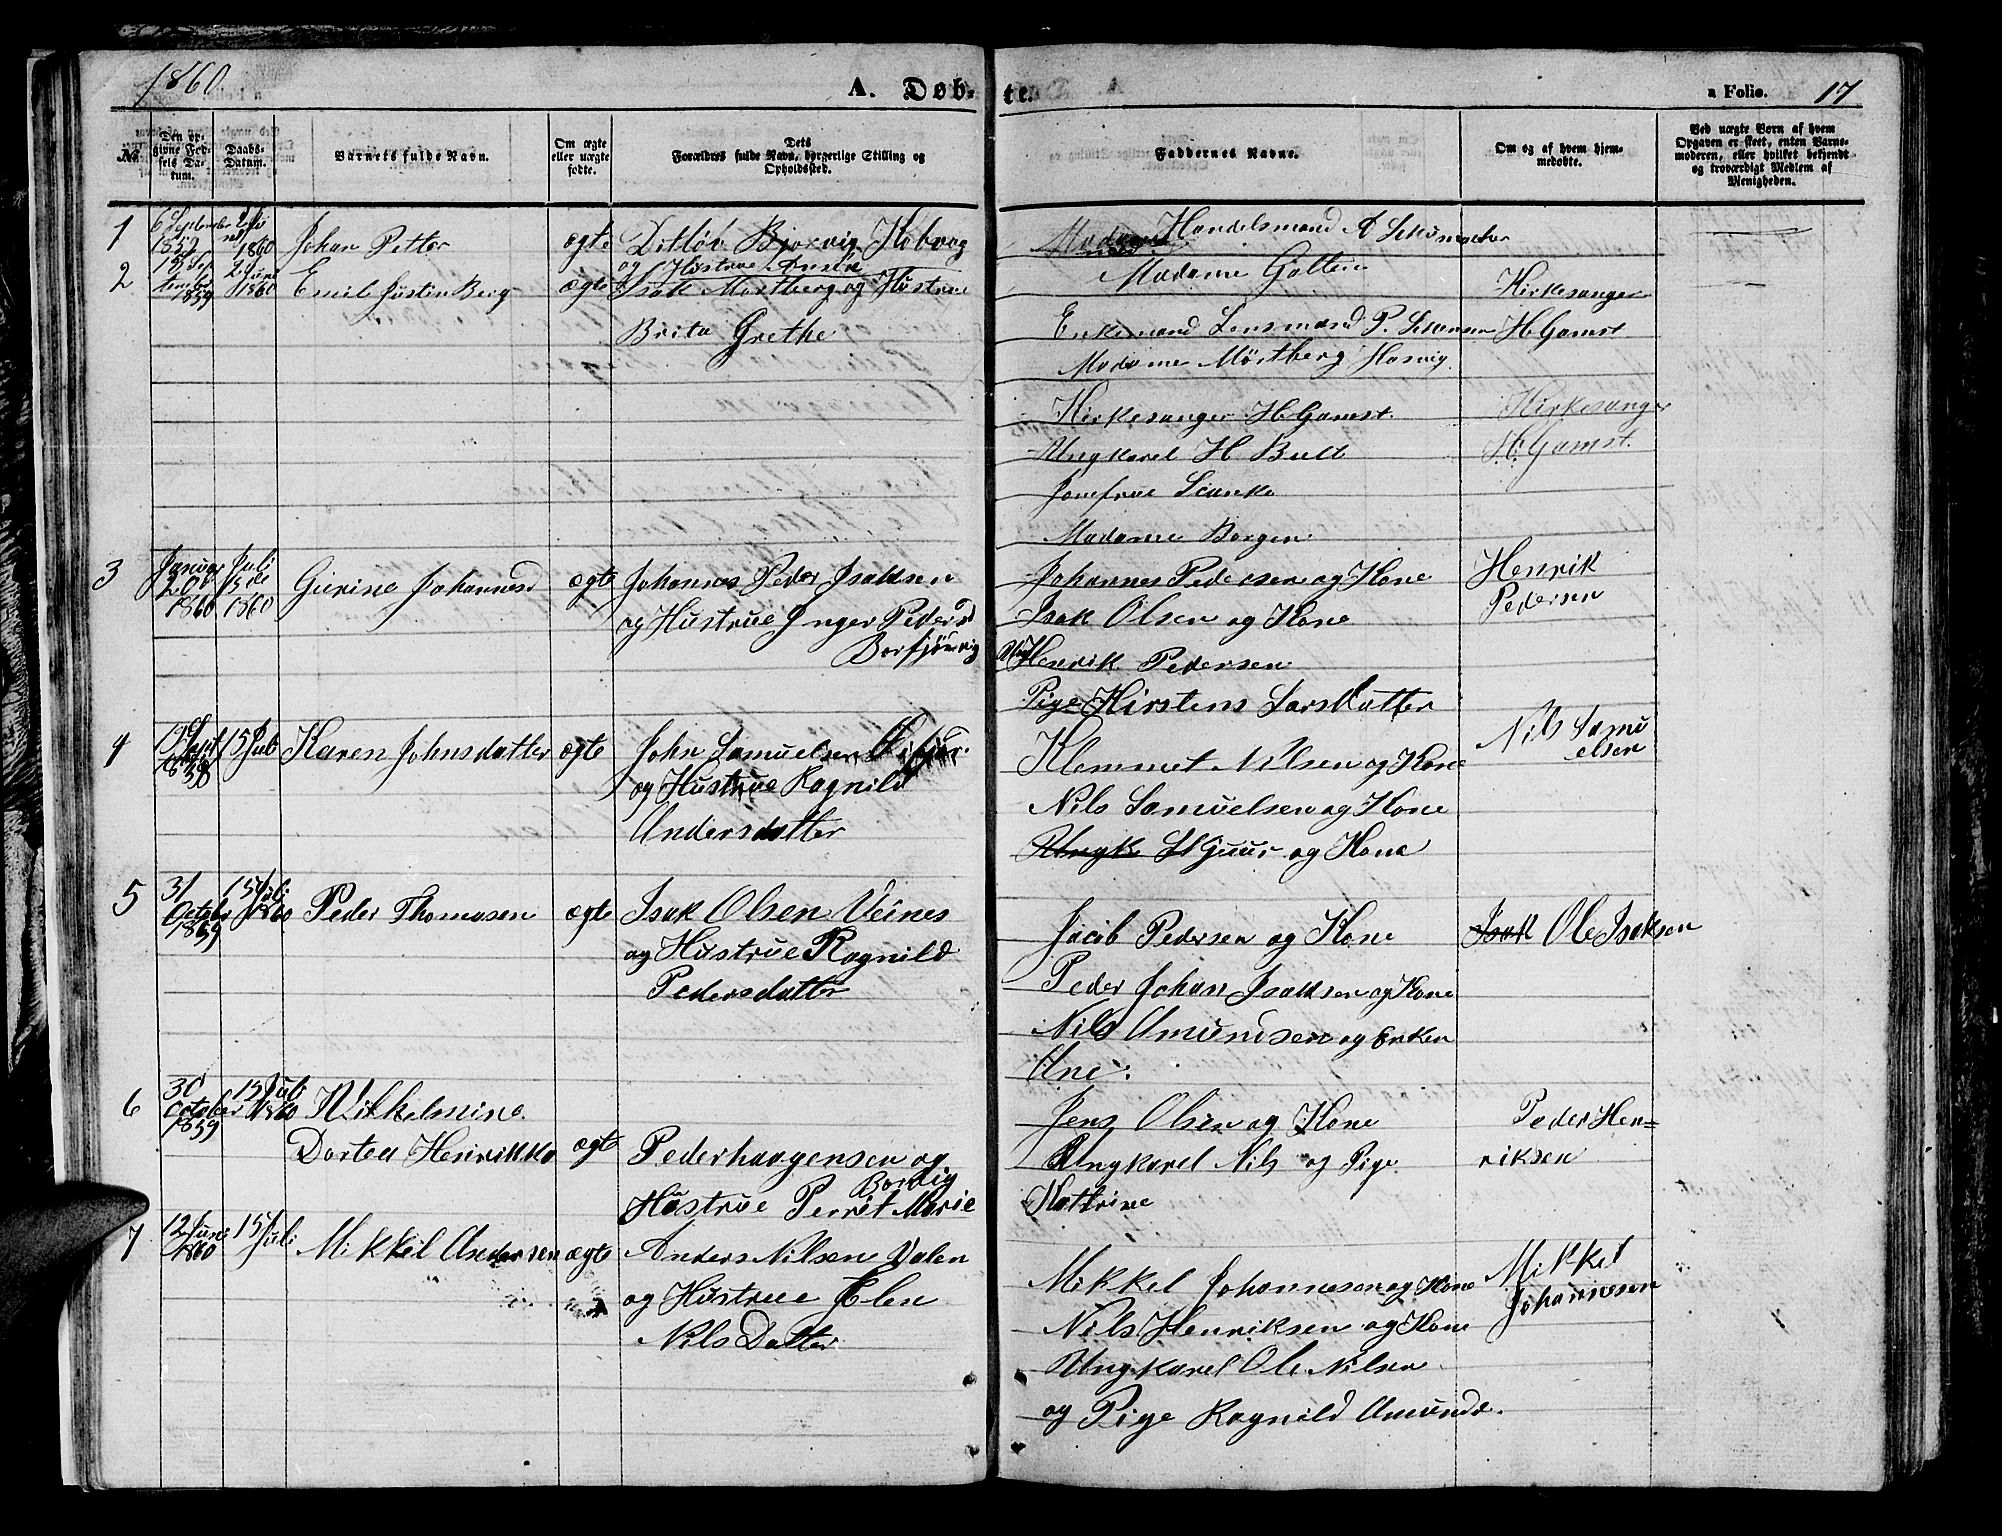 1860
A. Døb-
te.
a Folio. 17
No.
Den opgivne Fødsels Datum.
Daabs-Datum.
Barnets fulde Navn.
Om ægte eller uægte fødte.
Dets Forældres fulde Navn, borgerlige Stilling og Opholdssted.
Faddernes Navne.
Om og af hvem hjemmedøbte.
Ved uægte Born af hvem Opgaven er skeet, enten Barnemoderen, eller hvilket bekjendt og troværdigt Medlem af Menigheden.
1
6 September 1859
1860
Johan Petter
ægte
Ditløv Bjorvig Kobvog
og Hustrue
Handelsmand A
Madame Goltin
Enkemand Lensmand P.
Madame Mörtberg Hasvig
Kirkesanger
H Gamst
2
15 September 1859
2 Juni 1860
Emil Justin Berg
ægte
Isak Mortberg og Hustrue
Brita Grethe
Kirkesanger H. Gamst.
Ungkarel H Bull
Jomfrue
Madame Borgen
Kirkesanger
H. Gamst.
3
Januar 20de 1860
Juli 15de 1860
Gurine Johannesd
ægte
Johannes Peder Isaksen
og Hustrue Inger Pedersd
Johannes Pedersen og Kone
Isak Olsen og Kone
Henrik Pedersen
Pige Kirsten Larsdatter
Henrik
Pedersen
4
15 Juli
Karen Johnsdatter
ægte
John Samuelsen
og Hustrue Ragnild
Andersdatter
Klemmet Nilsen og Kone
Nils Samuelsen og Kone
og Kone
Nils Samu
elsen
5
31 October 1859
15 Juli 1860
Peder Thomasen
ægte
Isak Olsen Veines
og Hustrue Ragnild
Pedersdatter
Jacob Pedersen og Kone
Peder Johan Isaksen og Kone
Nils Amundsen og Enken
Ane.
Isak Ole Isaksen
6
30 October 1859
15 Juli 1860
Wilhelmine
Dortea
ægte
Peder
Hustrue Perrit Marie
Jens Olsen og Kone
Ungkarel Nils og Pige
Kattrine
Peder Hen=
riksen
7
12 Juni 1860
15 Juli
Mikkel Andersen
ægte
Anders Nilsen Valen
og Hustrue Elen
Nils Datter
Mikkel Johannesen og Kone
Nils Henriksen og Kone
Ungkarel Ole Nilsen
og Pige Ragnild Amundd.
Mikkel
Johannesen